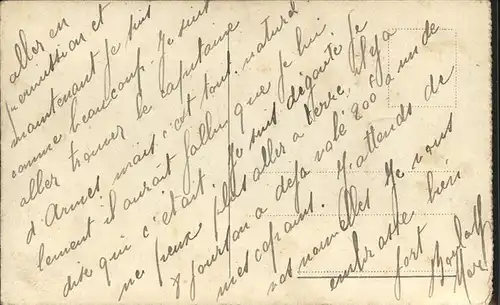 aller en
permission et
maintenant je suis
comme beaucoup. Je suis
aller trouver le capitaine
d'Armes mais c'est tout naturel
lement il aurait fallu que je lui
dise que c'était. Je suis dégouté je
ne peux plus aller a terre, il y a
8 jours on a deja volé 800f a un de
mes copains. J'attends de
vos nouvelles Je vous
embrasse bien
fort